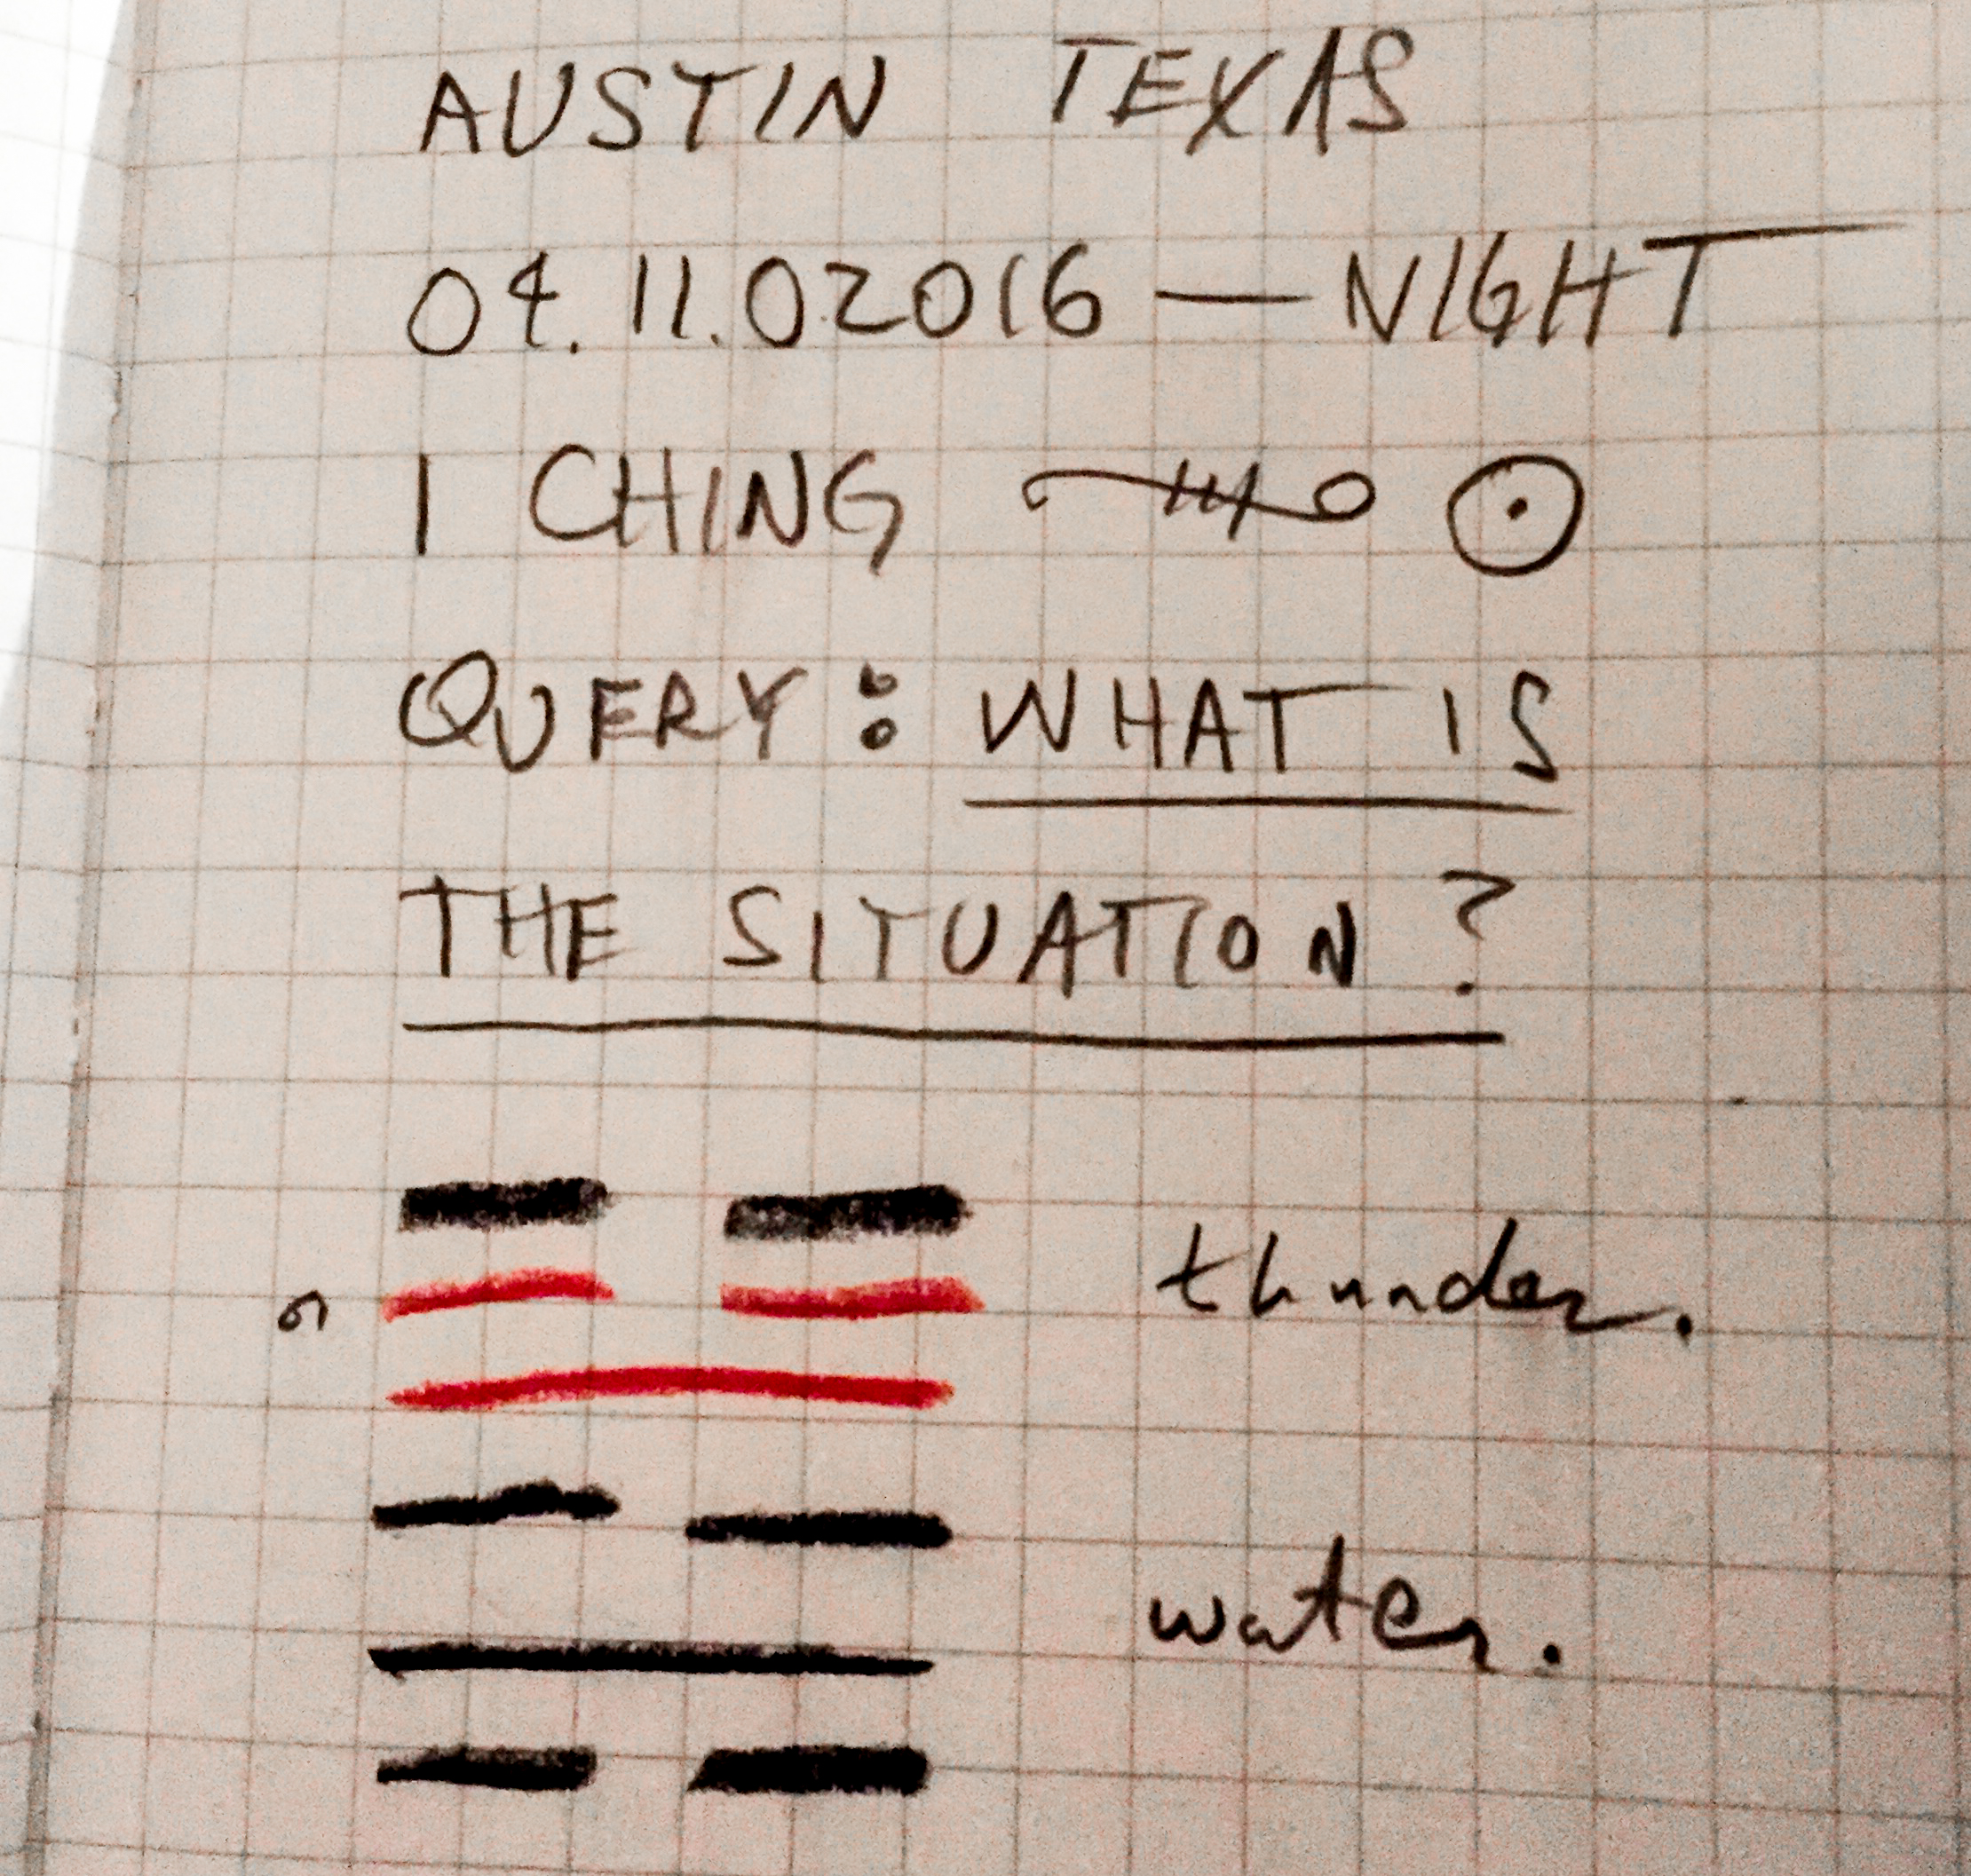 AUSTIN TEXAS
04.11.02016 — NIGHT
I CHING
QUERY: WHAT IS
THE SITUATION?
thunder.
water.